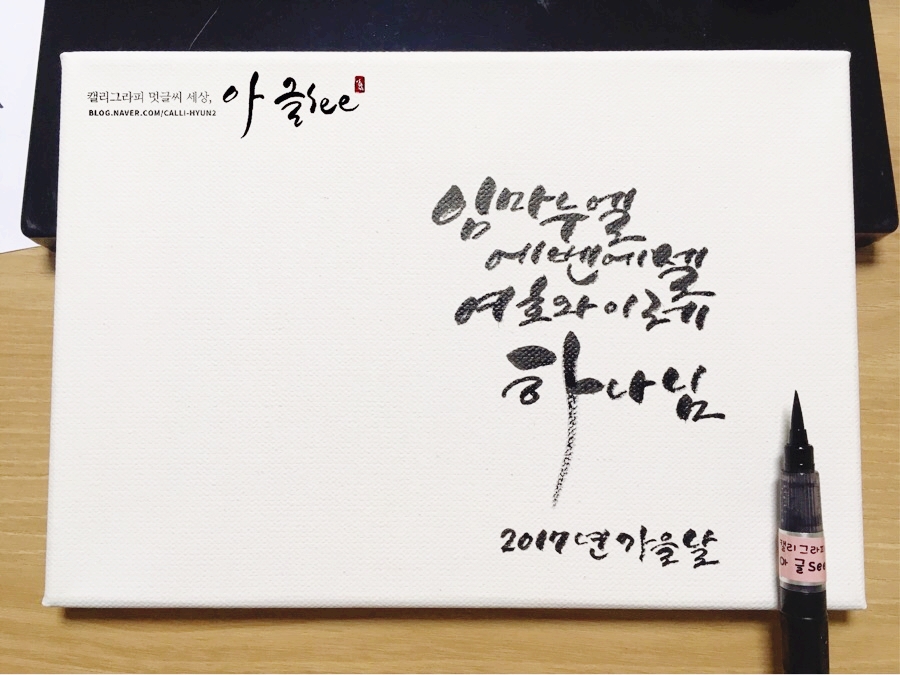 캘리그라피 멋글씨 세상,
BLOG.NAVER.COM/CALLI-HYUN2
아 글see
임마누엘
에벤에젤
여호와이레
하나님
2017년 가을날
캘리그라피
아 글see